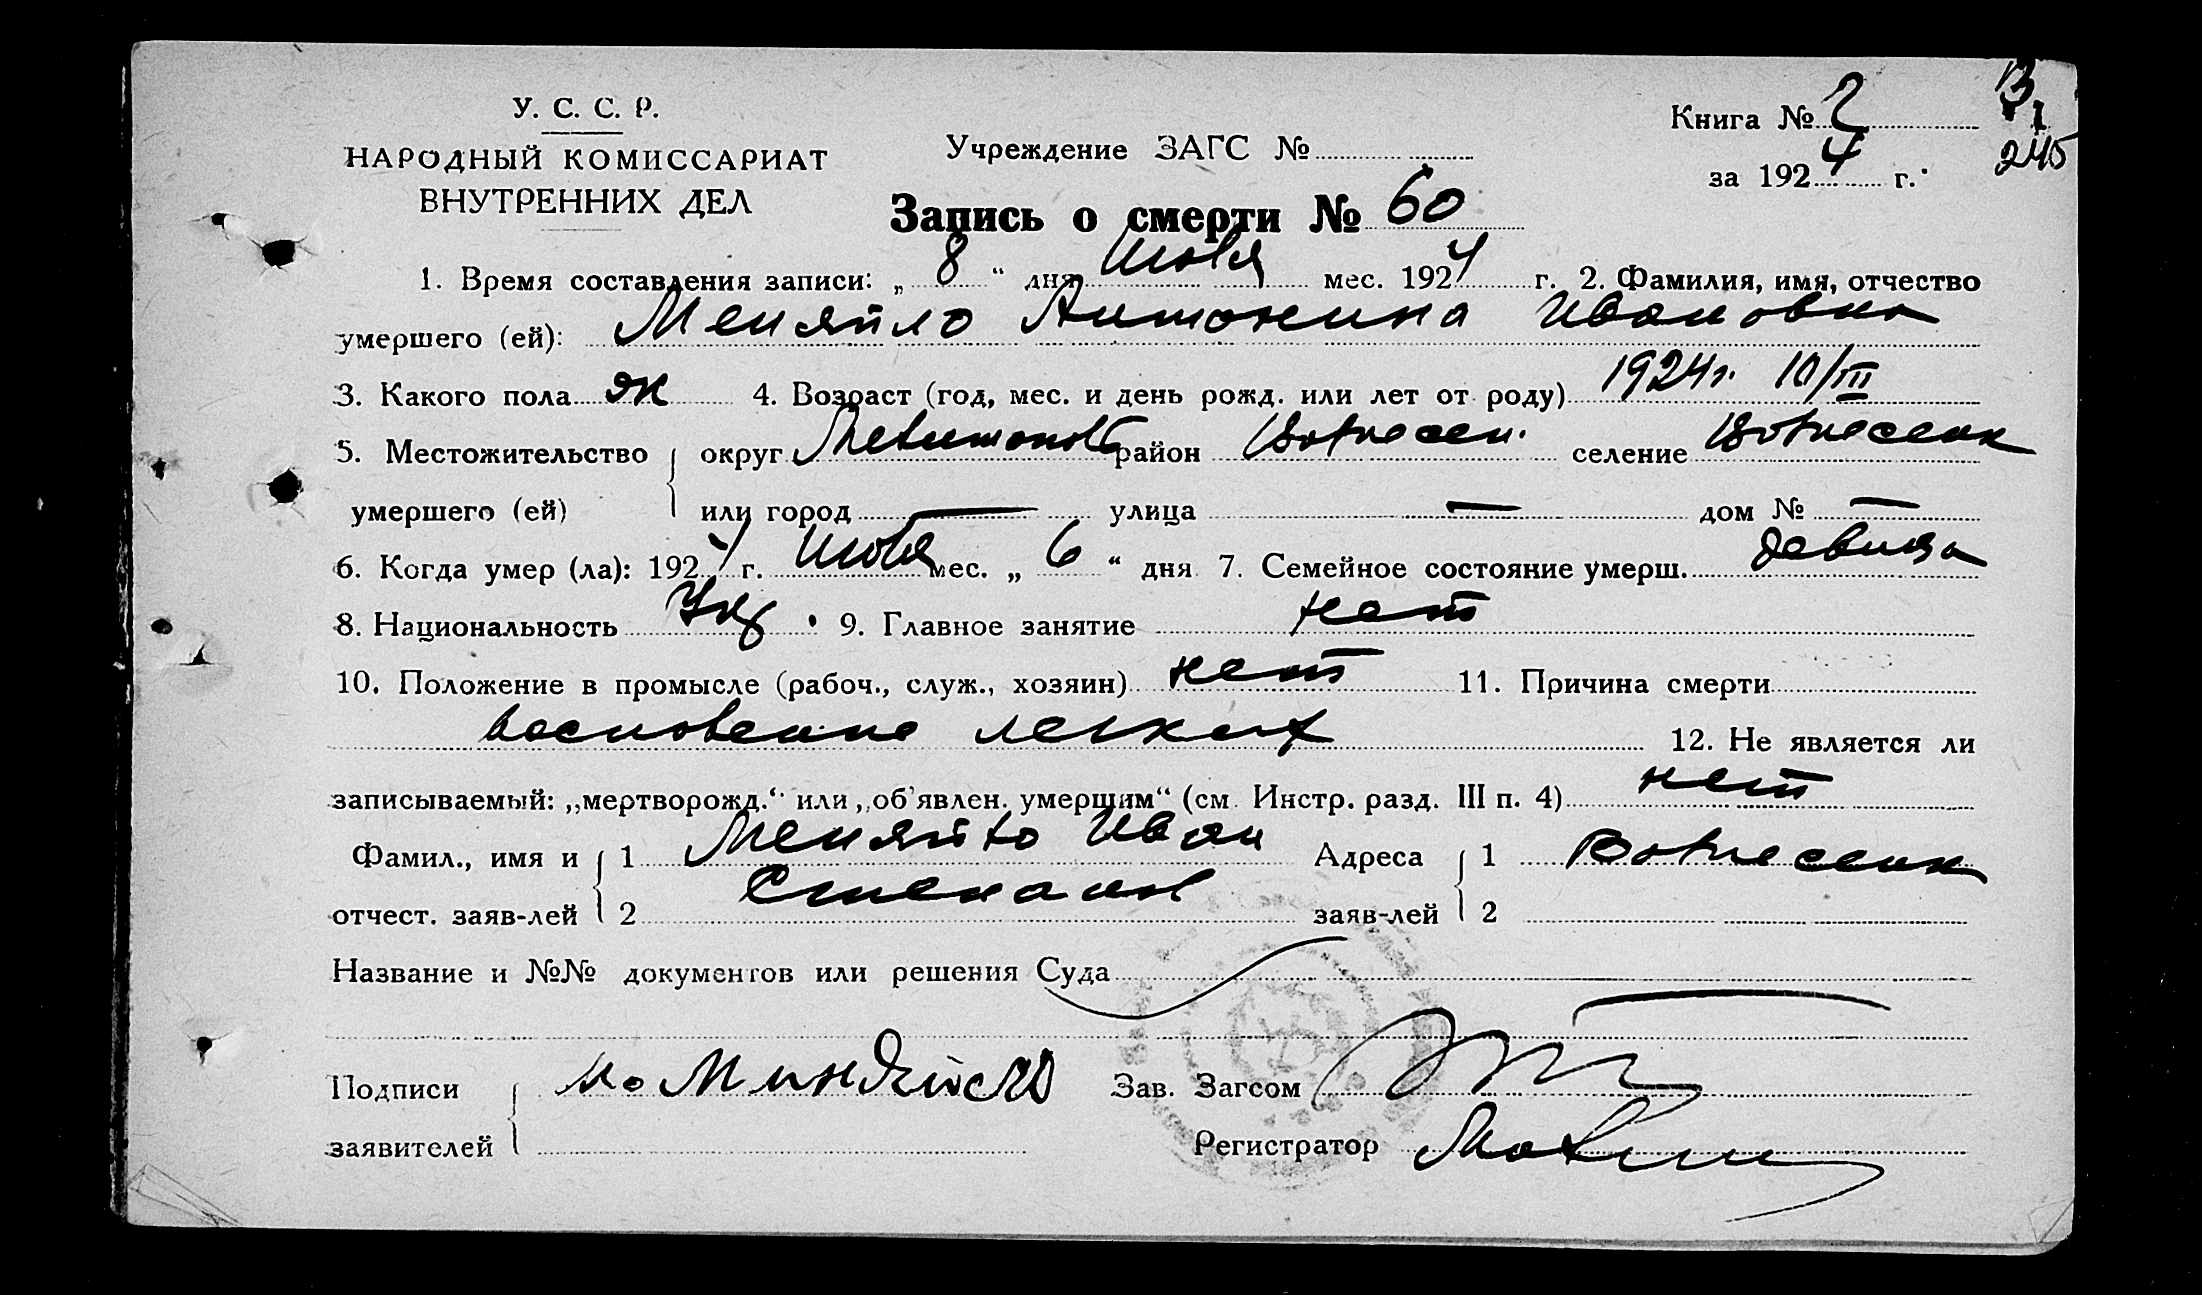 У. С. С. Р.
НАРОДНЫЙ КОМИССАРИАТ
ВНУТРЕННИХ ДЕЛ
Учреждение ЗАГС №
Книга № 2
за 1924 г.
245
Запись о смерти № 60
1. Время составления записи: „ 8 “ дня Июля мес. 1924 г. 2. Фамилия, имя, отчество
умершего (ей): Меняйло Антонина Ивановна
3. Какого пола ж 4. Возраст (год, мес. и день рожд. или лет от роду) 1924 г. 10/III
5. Местожительство округ район Вознесен. селение Вознесенк
умершего (ей) или город — улица — дом № —
6. Когда умер (ла): 1924 г. Июля мес. „ 6 “ дня 7. Семейное состояние умерш. девица
8. Национальность Укр 9. Главное занятие нет
10. Положение в промысле (рабоч., служ., хозяин) нет 11. Причина смерти
легких 12. Не является ли
записываемый: „мертворожд.“ или „об'явлен. умершим“ (см. Инстр. разд. III п. 4) нет
Фамил., имя и 1 Меняйло Иван Адреса 1 Вознесенк
отчест. заяв-лей 2 Степанов заяв-лей 2
Название и №№ документов или решения Суда
Подписи Зав. Загсом
заявителей Регистратор